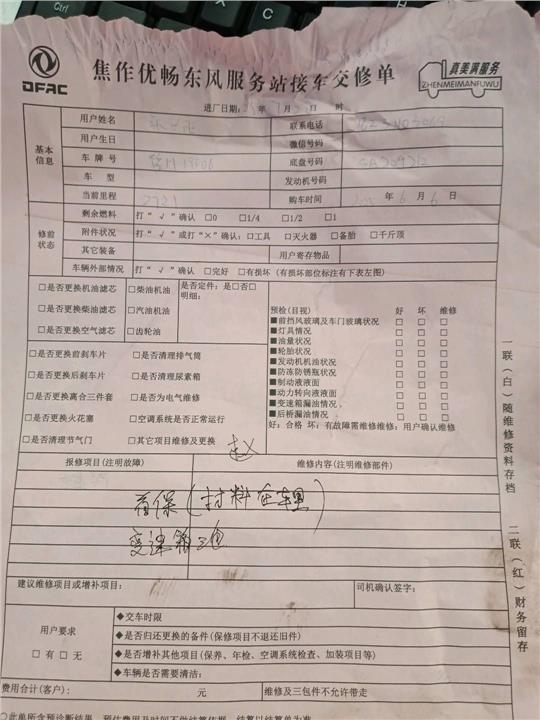 Ctrl
DFAC
焦作优畅东风服务站接车交修单
真美满服务
ZHENMEIMANFUWU
进厂日期: 年 月 日 时
基本信息
用户姓名 联系电话
用户生日 微信号码
车牌号 底盘号码
车型 发动机号码
当前里程 购车时间 年 6 月 6 日
修前状态
剩余燃料 打“√”确认 □0 □1/4 □1/2 □1
附件状况 打“√”或打“×”确认：□工具 □灭火器 □备胎 □千斤顶
其它装备 用户寄存物品
车辆外部情况 打“√”确认 □完好 □有损坏（有损坏部位标注有下表左图）
□是否更换机油滤芯 □柴油机油
□是否更换柴油滤芯 □汽油机油
□是否更换空气滤芯 □齿轮油
是否定件：是□否□
明细：
□是否更换前刹车片 □是否清理排气筒
□是否更换后刹车片 □是否清理尿素箱
□是否更换离合三件套 □是否为电气维修
□是否更换火花塞 □空调系统是否正常运行
□是否清理节气门 □其它项目维修及更换
预检(目视) 好 坏 维修
■前挡风玻璃及车门玻璃状况 □ □ □
■灯具情况 □ □ □
■油量状况 □ □ □
■轮胎状况 □ □ □
■发动机机油状况 □ □ □
■防冻防锈瓶状况 □ □ □
■制动液液面 □ □ □
■动力转向液液面 □ □ □
■变速箱漏油情况 □ □ □
■后桥漏油情况 □ □ □
好：合格 坏：有故障需维修维修：用户确认维修
报修项目(注明故障) 维修内容(注明维修部件)
首保(材料在车里)
变速箱
建议维修项目或增补项目： 司机确认签字：
用户要求
□有 □无
◆交车时限
◆是否归还更换的备件(保修项目不退还旧件)
◆是否增补其他项目(保养、年检、空调系统检查、加装项目等)
◆车辆是否需要清洁：
费用合计(客户)： 元 维修及三包件不允许带走
一联(白)随维修资料存档
二联(红)财务留存